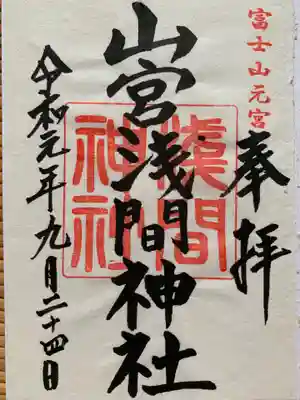 富士山元宮
奉拝
山宮浅間神社
浅間神社
令和元年九月二十四日